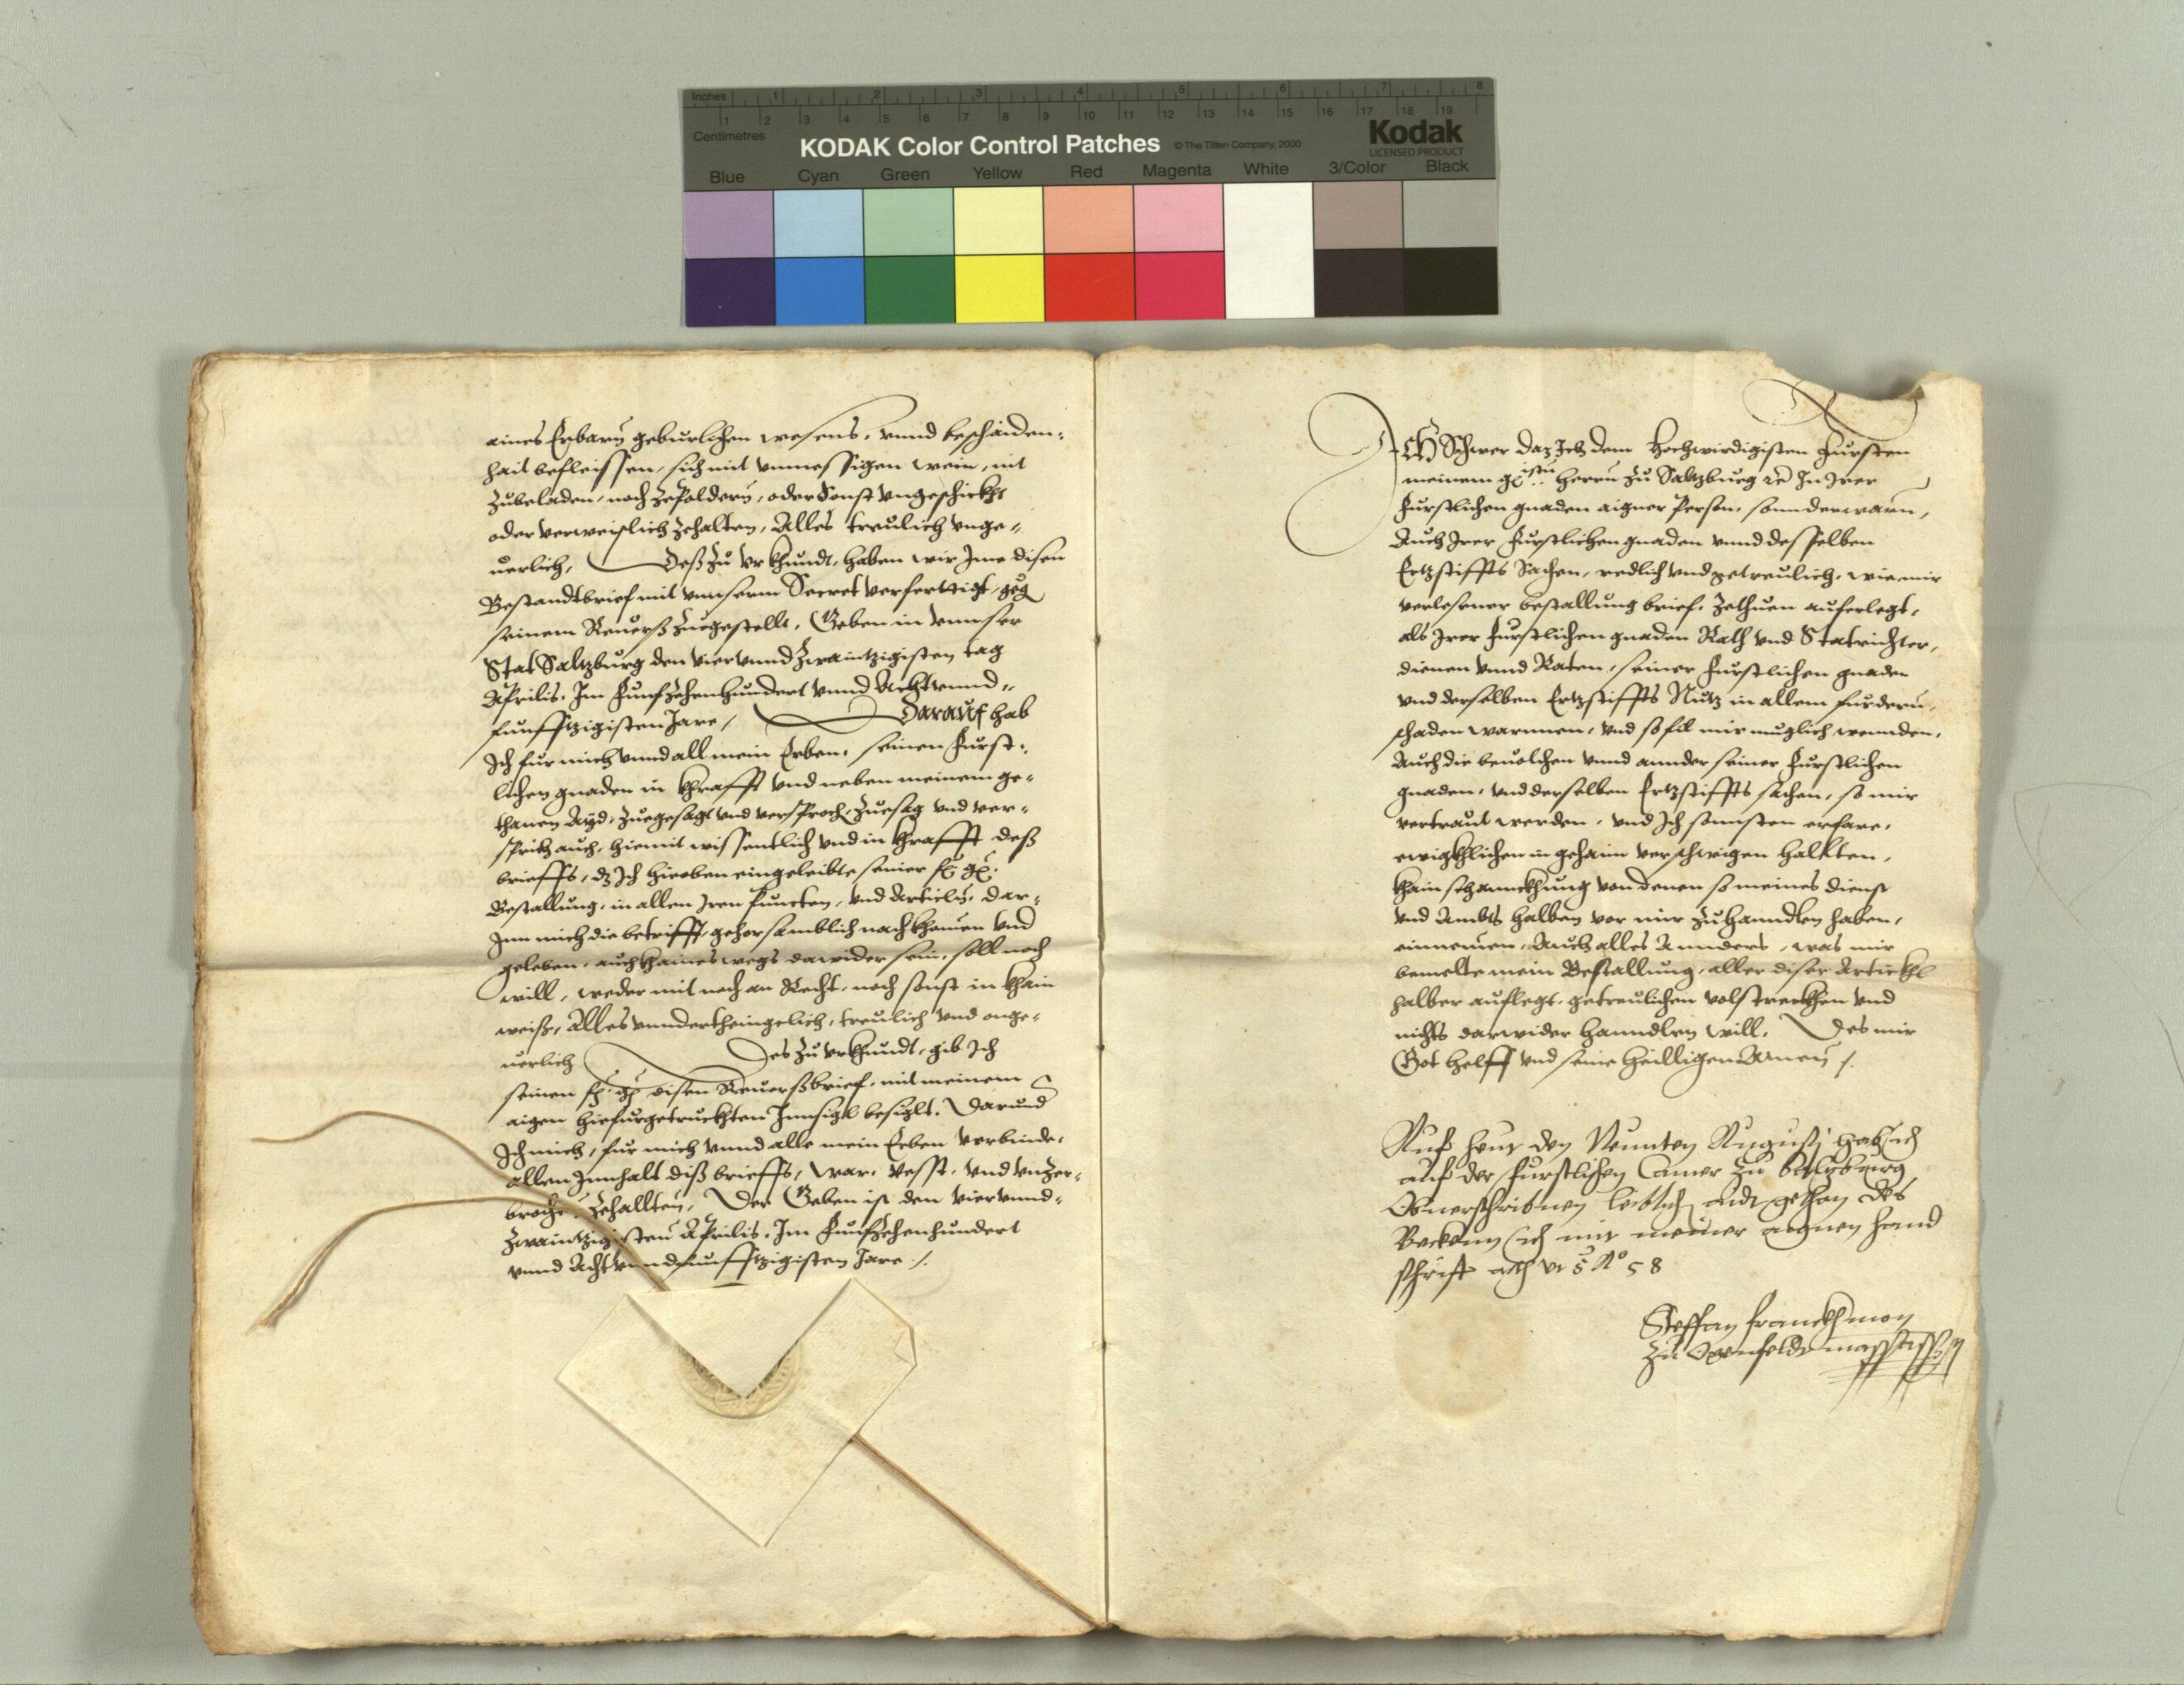 Inches 1 2 3 4 5 6 7 8
1 2 3 4 5 6 7 8 9 10 11 12 13 14 15 16 17 18 19
Centimetres
KODAK Color Control Patches © The Tiffen Company, 2000
Kodak
LICENSED PRODUCT
Blue Cyan Green Yellow Red Magenta White 3/Color Black
aines Erbarn geburlichen wesens, vnnd beschaiden-
hait befleissen, sich mit vnmessigen wein, nit
zubeladen, noch zepoldern, oder Sonst vngeschickht
oder verweislich zehalten, Alles treulich vnge-
uerlich, Deß zu vrkhundt, haben wir Ime disen
Bestandtbrief mit vnnserm Secret verferttigt, geg
seinem Reuerß zuegestellt, Geben in vnnser
Stat Saltzburg den viervnnd zwaintzigisten tag
Aprilis. Im Funfzehenhundert vnnd Achtvnnd-
funfftzigisten Jare, Darauf hab
Ich fur mich vnnd all mein Erben, seinen Furst-
lichen gnaden in khrafft vnd neben meinem ge-
thanen Ayd, zuegesagt vnd versproch, Zuesag vnd ver-
sprich auch, hiemit wissentlich vnd in khrafft deß
brieffs, dz Ich hieoben eingeleibte seiner f. g.
Bestallung, in allen Iren Puncten, vnd Articln, dar-
Inn mich die betrifft, gehorsamblich nachkhomen vnd
geleben, auch khaines wegs dawider sein, soll noch
will, weder mit noch an Recht, noch sonst in khain
weiß, Alles vnndertheingelich, treulich vnd onge-
uerlich Des zu vrkhundt, gib Ich
seinen f. g. disen Reuerßbrief, mit meinem
aigen hiefurgetruckhten Innsigl besiglt. Darund
Ich mich, fur mich vnnd alle mein Erben verbinde,
allen Innhalt diß brieffs, war, vesst, vnd vnzer-
brochn zehallten, Der Geben ist den viervnnd-
zwaintzigisten Aprilis. Im Funfzehenhundert
vnnd Achtvnndfunfftzigisten Jare ./.
ICH Schwer daz Ich dem Hochwirdigisten Fursten
meinem g. isten Herrn zu Saltzburg rc In Irer
Furstlichen gnaden aigner Person, sonnderwarn,
Auch Irer Furstlichen gnaden vnnd desselben
Ertzstiffts Sachen, redlich vnd getreulich, wie mir
verlesener bestallung brief, zethuen auferlegt,
als Irer Furstlichen gnaden Rath vnd Statrichter,
dienen vnnd Raten, seiner Furstlichen gnaden
vnd derselben Ertzstiffts Nutz in allem furdern,
schaden warnnen, vnd sofil mir muglich wennden,
Auch die beuolchen vnnd annder seiner Furstlichen
gnaden, vnd derselben Ertzstiffts sachen, so mir
vertraut werden, vnd Ich sonnsten erfare,
ewigkhlichen in gehaim verschwigen halten,
khain schannckhung von denen so meines dienst
vnd Ambts halben vor mir zu hanndlen haben,
einnemen, Auch alles Annders, was mir
bemelte mein Bestallung, aller diser Artickhl
halber auflegt, getreulichen volstreckhen vnd
nichts darwider hanndlen will. Des mir
Got helff vnd seine heilligen Amen ./.
Auf heut den Neunten Augusti hab ich
auf der furstlichen Camer zu Saltzburg
Obuerschribnen leiblich aidt gethan des
Bekenn ich mit meiner aignen hand
schrifft
Steffan Franckhmon
zu